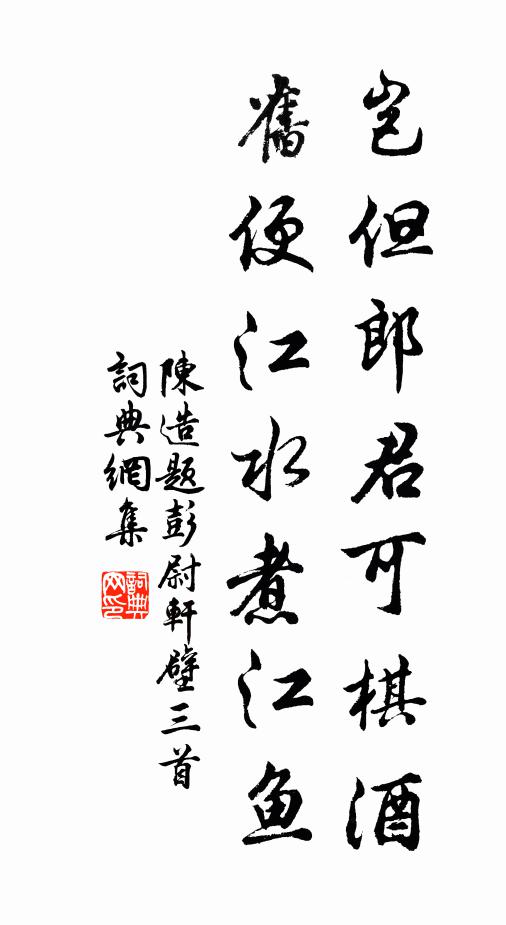 岂但郎君可棋酒
旧便江水煮江鱼
陳造题彭尉軒壁三首
詞典網集
詞典网印